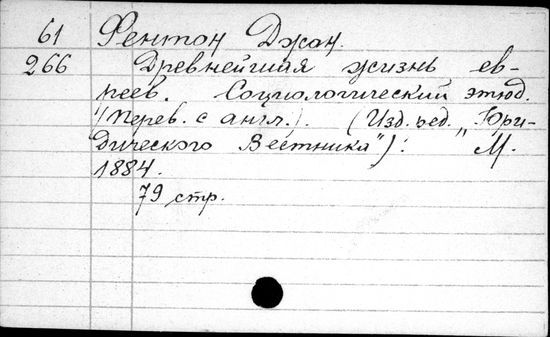 61 Фентон Джон.
266 Древнейшая жизнь ев-
реев. Социологический этюд.
(Перев. с англ.). (Изд. ред. „Юри-
дического Вестника"). М.
1884.
79 стр.